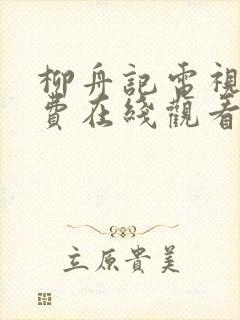 柳舟記電視
費在綫觀看
立原貴美